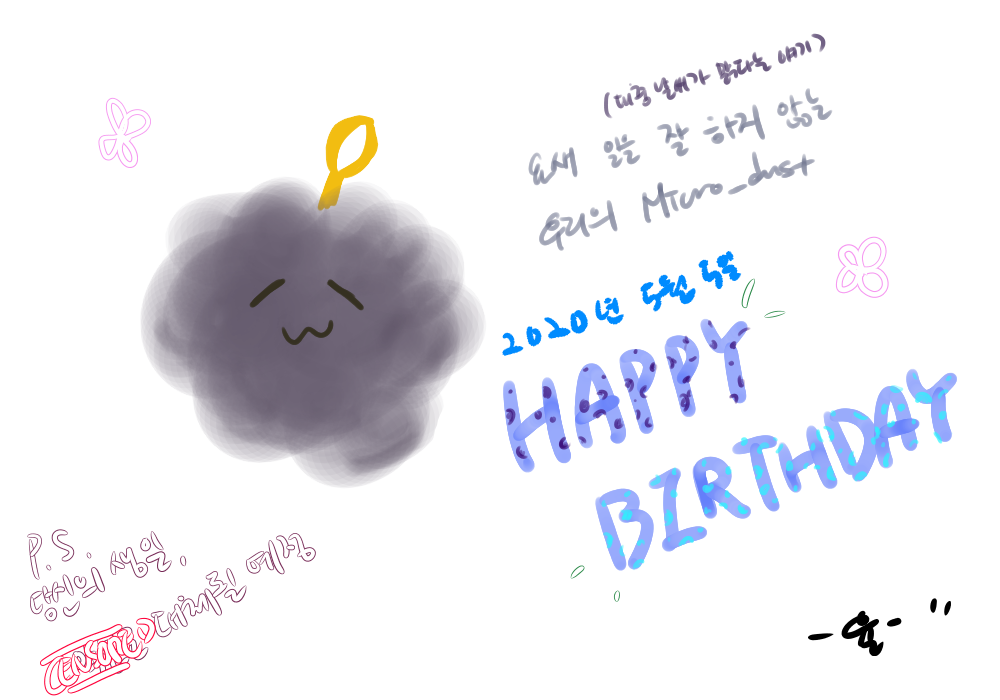 (대충 날씨가 맑다는 얘기)
요새 일을 잘 하지 않는
우리의 Micro_dust
2020년 5월 5일
HAPPY
BIRTHDAY
P.S.
당신의 생일,
대체될 예정
-율- "